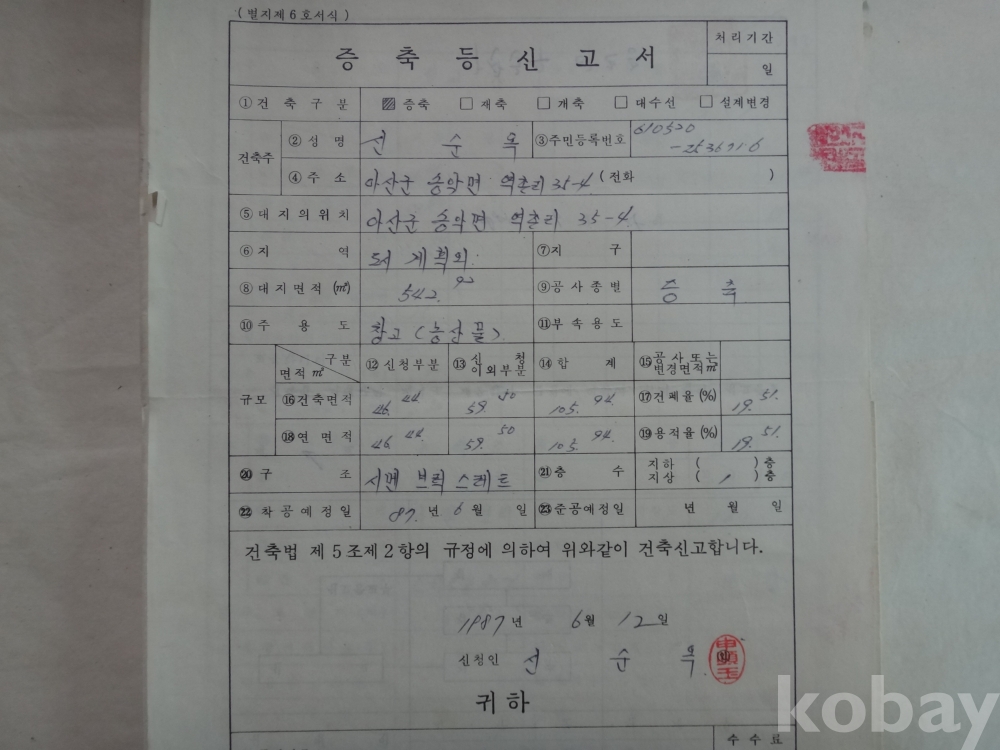 (별지제6호서식)
증축등신고서
처리기간
일
①건축구분 ▨증축 □재축 □개축 □대수선 □설계변경
건축주 ②성명 순옥 ③주민등록번호 610520
④주소 아산군 송악면 역촌리 35-4 (전화 )
⑤대지의위치 아산군 송악면 역촌리 35-4
⑥지역 도시계획외. ⑦지구
⑧대지면적(㎡) 542. ⑨공사종별 증축
⑩주용도 창고(농산물) ⑪부속용도
규모 구분 면적㎡ ⑫신청부분 ⑬신청이외부분 ⑭합계 ⑮공사또는변경면적㎡
⑯건축면적 46.44 59.50 105.94 ⑰건폐율(%) 19.51
⑱연면적 46.44 59.50 105.94 ⑲용적율(%) 19.51
⑳구조 시멘브럭스레트 ㉑층수 지하( )층
지상( )층
㉒착공예정일 87.년 6월 일 ㉓준공예정일 년 월 일
건축법 제5조제2항의 규정에 의하여 위와같이 건축신고합니다.
1987년 6월 12일
신청인 순옥
귀하
수수료
kobay